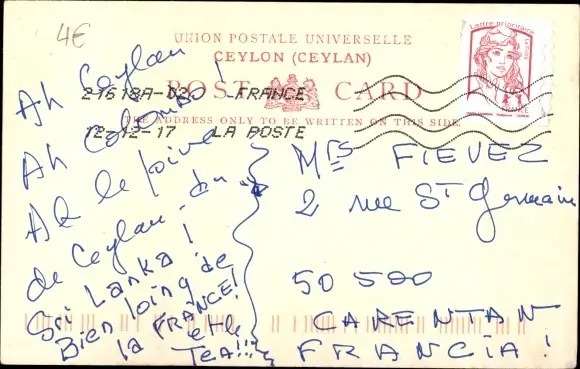 4€
UNION POSTALE UNIVERSELLE
CEYLON (CEYLAN)
POST CARD
THE ADDRESS ONLY TO BE WRITTEN ON THIS SIDE
Lettre prioritaire
21618A-02 FRANCE
12-12-17 LA POSTE
Ah Ceylan
Ah Colombo!
Ah le poivre
de Ceylan - du
Sri Lanka!
Bien loing de
la FRANCE!
et le
TEA!!!
Mrs FIEVEZ
2 rue St Germain
50 500
CARENTAN
FRANCIA!